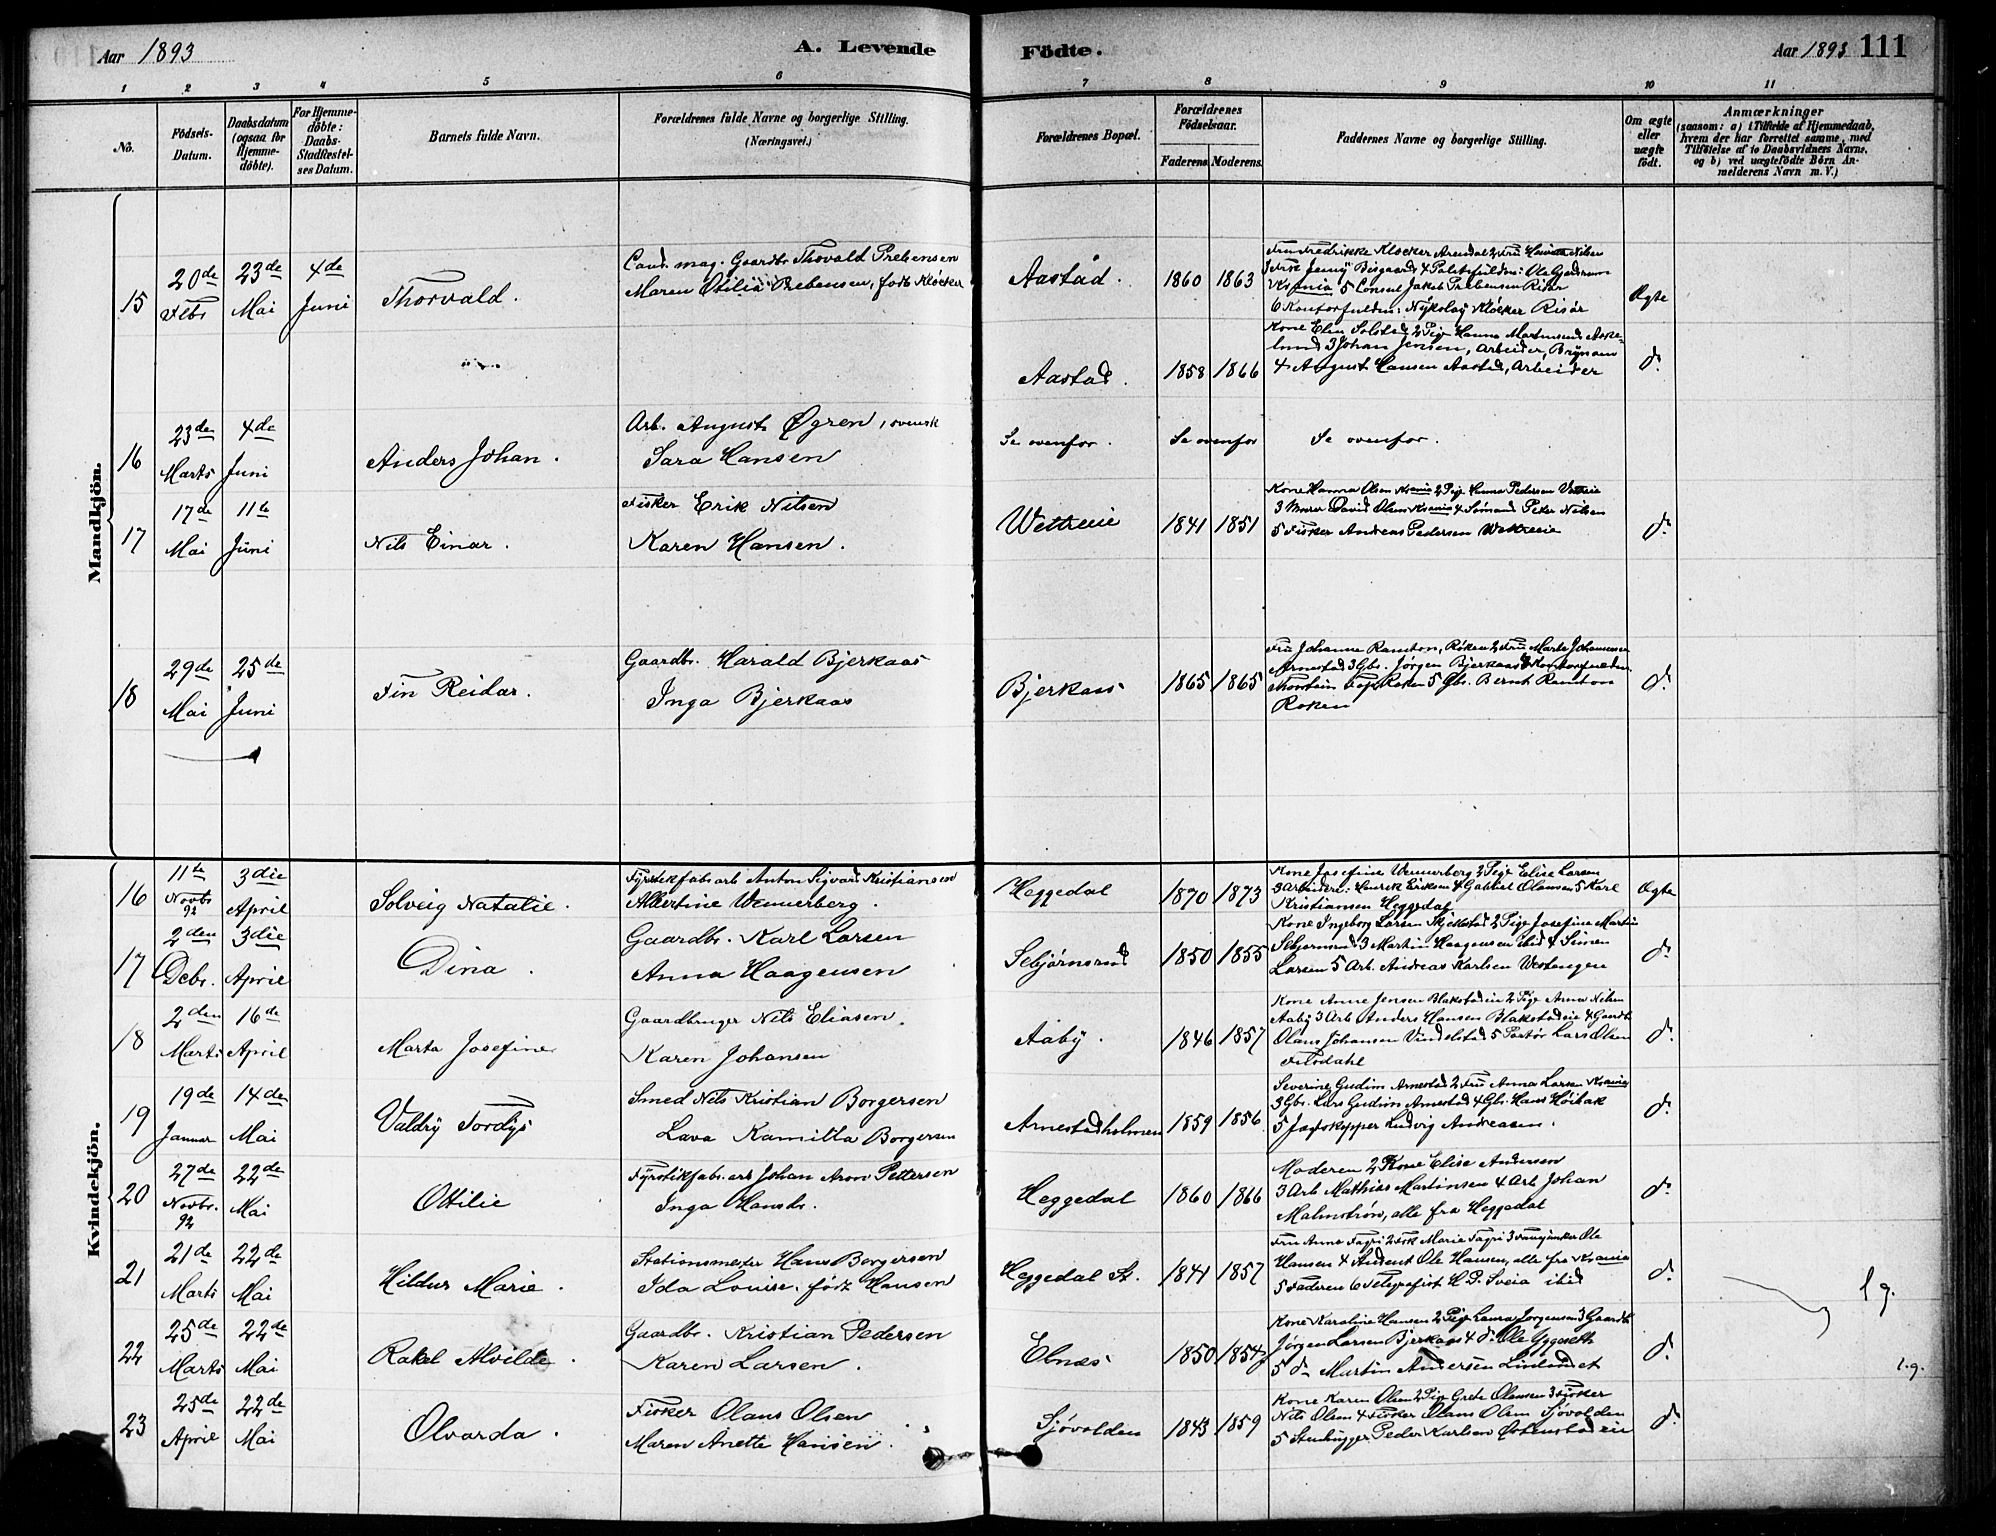 Aar 1893
A. Levende
Födte.
Aar 1893 111
1 2 3 4 5 6 7 8 9 10 11
No.
Födsels-
Datum.
Daabsdatum
(ogsaa for
Hjemme-
döbte).
For Hjemme-
döbte:
Daabs-
Stadfæstel-
ses Datum.
Barnets fulde Navn.
Forældrenes fulde Navne og borgerlige Stilling.
(Næringsvei.)
Forældrenes Bopæl.
Forældrenes
Födselsaar.
Faderens Moderens.
Faddernes Navne og borgerlige Stilling.
Om ægte
eller
uægte
födt.
Anmærkninger
(saasom: a) i Tilfælde af Hjemmedaab,
hvem der har forrettet samme, med
Tilföielse af to Daabsvidners Navne,
og b) ved uægtefödte Börn An-
melderens Navn m. V.)
Mandkjön.
15
20de Febr
23de Mai
4de Juni
Thorvald.
Cand. mag. Gaardbr. Thovald Prebensen
Maren Otilia Prebensen, født Kløcker
Aastad.
1860 1863
Fru Fredrikke Kløcker Arendal 2 Fru
Kr.ania 5 Consul Jakob Prebensen Risør
6 Kontorfuldm: Nykolay Kløcker Risør
Ægte
Aastad.
1858 1866
Kone Elen Solstad 2 Pige Hanna Martinsen Aske-
lund 3 Johan Jensen, Arbeider,
4 August Hansen Aastad, Arbeider
do
16
23de Marts
4de Juni
Anders Johan.
Arb. August Øgren, svensk
Sara Hansen
Se ovenfor.
Se ovenfor
Se ovenfor.
17
17de Mai
11te Juni
Nils Einar.
Fisker Erik Nilsen
Karen Hansen.
Wettreeie
1841 1851
Kone Hanna Olsen Krania 2 Pige Hanna Pedersen
3 Murer David Olsen Krania 4 Sømand Peter Nilsen
5 Fisker Andreas Pedersen Wettreeie
do
18
29de Mai
25de Juni
Fin Reidar.
Gaardbr. Harald Bjerkaas
Inga Bjerkaas
Bjerkaas
1865 1865
Fru Johanne Ramton, Røken 2 Fru Marte Johannesen
Arnestad 3 Gbr. Jørgen Bjerkaas 4 Kontorfuldm.
Thorstein Røken 5 Gbr. Bernt Ramton
Røken
do
Kvindekjön.
16
11te Novbr 92
3die April
Solveig Natalie.
Fyrstikfabr.arb Anton Sigvard Kristiansen
Albertine Wennerberg.
Heggedal
1870 1873
Kone Josefine Wennerberg 2 Pige Elise Larsen
3 Arbeidere: Henrik Eriksen 4 Gabriel Olausen 5 Karl
Kristiansen Heggedal
Ægte
17
2den Debr.
3die April
Dina.
Gaardbr. Karl Larsen
Anna Haagensen
Sebjørnsrud
1850 1855
Kone Ingeborg Larsen Skjelstad 2 Pige Josefine Martin
Sebjørnsrud 3 Martin Haagensen ibid 4 Simen
Larsen 5 Arb. Andreas Karlsen Westengen
do
18
2den Marts
16de April
Marta Josefine
Gaardbruger Nils Eliasen.
Karen Johansen
Aaby.
1846 1857
Kone Anne Jensen Blakstadeie 2 Pige Anna Nilsen
Aaby 3 Arb Anders Hansen Blakstadeie 4 Gaardbr
Olaus Johansen Vindelstad 5 Pastør Lars Olsen
do
19
19de Januar
14de Mai
Valdry Tordys
Smed Nils Kristian Borgersen
Lava Kamilla Borgersen
Arnestadholmen
1859 1856
Severine Gudim Arnestad 2 Fru Anna Larsen Krania
3 Gbr. Lars Gudim Arnestad 4 Gbr. Hans
5 Jagtskipper Ludvig Andreasen.
do
20
27de Novbr. 92
22de Mai
Otilie
Fyrstikfabr.arb Johan Aron Pettersen
Inga Hansdr.
Heggedal
1860 1866
Moderen 2 Kone Elise Andersen
3 Arb Mathias Martinsen 4 Arb Johan
Malmstrøm, alle fra Heggedal
do
21
21de Marts
22de Mai
Hildur Marie.
Stationsmester Hans Borgersen
Ida Louise. født Hansen
Heggedal St.
1841 1857
Fru Anna Fagri 2 Frk Marie Fagri 3 Ole
Hansen 4 Student Ole Hansen, alle fra Krania
5 Faderen 6 Telegrafist H. P. Sveia ibid
do
22
25de Marts
22de Mai
Rakel Alvilde.
Gaardbr. Kristian Pedersen
Karen Larsen.
Elnæs
1850 1854
Kone Karoline Hansen 2 Pige Laura Jørgensen 3 Gaardbr
Jørgen Larsen Bjerkaas 4 do Ole Yggeseth
5 do Martin Andersen Linlandet
do
23
25de April
22de Mai
Olvarda.
Fisker Olaus Olsen
Maren Anette Hansen.
Sjøvolden
1843 1859
Kone Karen Olsen 2 Pige Grete Olausen 3 Fisker
Nils Olsen 4 Fisker Olaus Olsen Sjøvolden
5 Stenhugger Peder Karlsen Østenstadeie
do